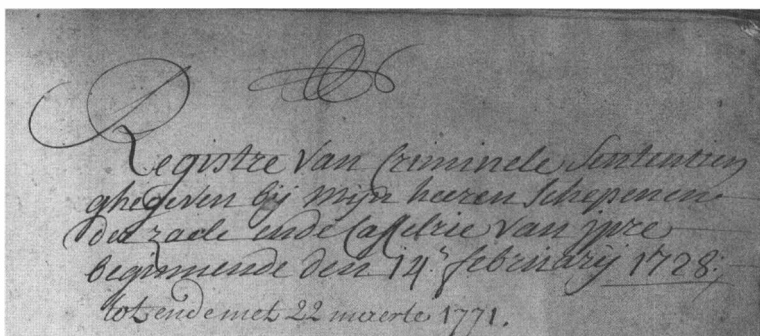 Registre van Criminele Sententien
ghegeven bij mijn heeren Schepenen
der zaele ende Casselrie van jpre
beginnende den 14.' februarij 1728;
tot ende met 22 maerte 1771.